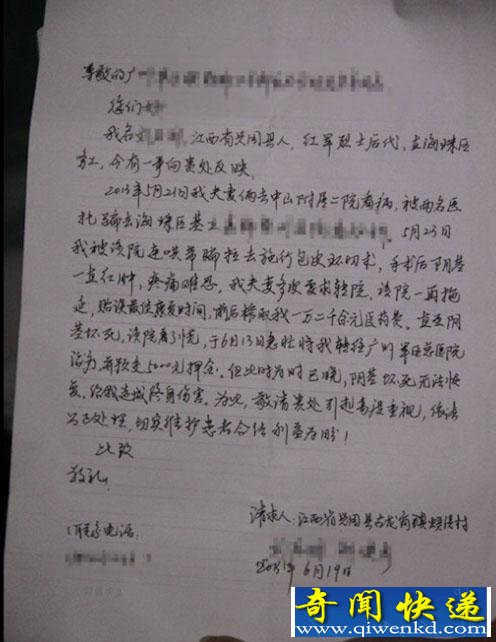 尊敬的广
您们好
我名 江西省兴国县人，红军烈士后代，在海珠区
务工，今有一事向贵处反映。
2013年5月21日我夫妻俩去中山附属二院看病，被两名医
托骗去海珠区基立 5月23日
我被该院连哄带骗拉去施行包皮环切术，手术后阴茎
一直红肿，疼痛难忍。我夫妻多次要求转院，该院一再拖
延，贻误最佳康复时间，前后榨取我一万二千余元医药费。直至阴
茎坏死，该院看了慌，于6月13日急忙将我转往广州军区总医院
治疗，并致走5000元押金。但此时为时已晚，阴茎坏死无法恢
复，给我造成终身伤害。为此，敬请贵处引起高度重视，依法
公正处理，切实维护患者合法利益为盼！
此致
敬礼
联系电话：
请求人：江西省兴国县古龙岗镇 村
2013年6月19日
奇闻快递
www.qiwenkd.com